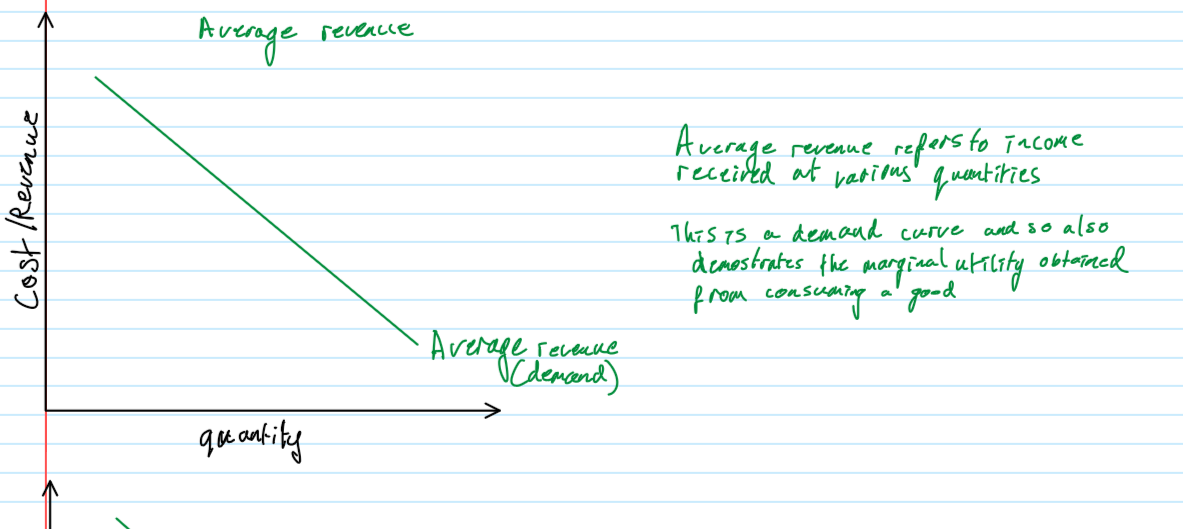 Average revenue
Cost/Revenue
Average revenue refers to income
received at various quantities
This is a demand curve and so also
demostrates the marginal utility obtained
from consuming a good
Average revenue
(demand)
quantity